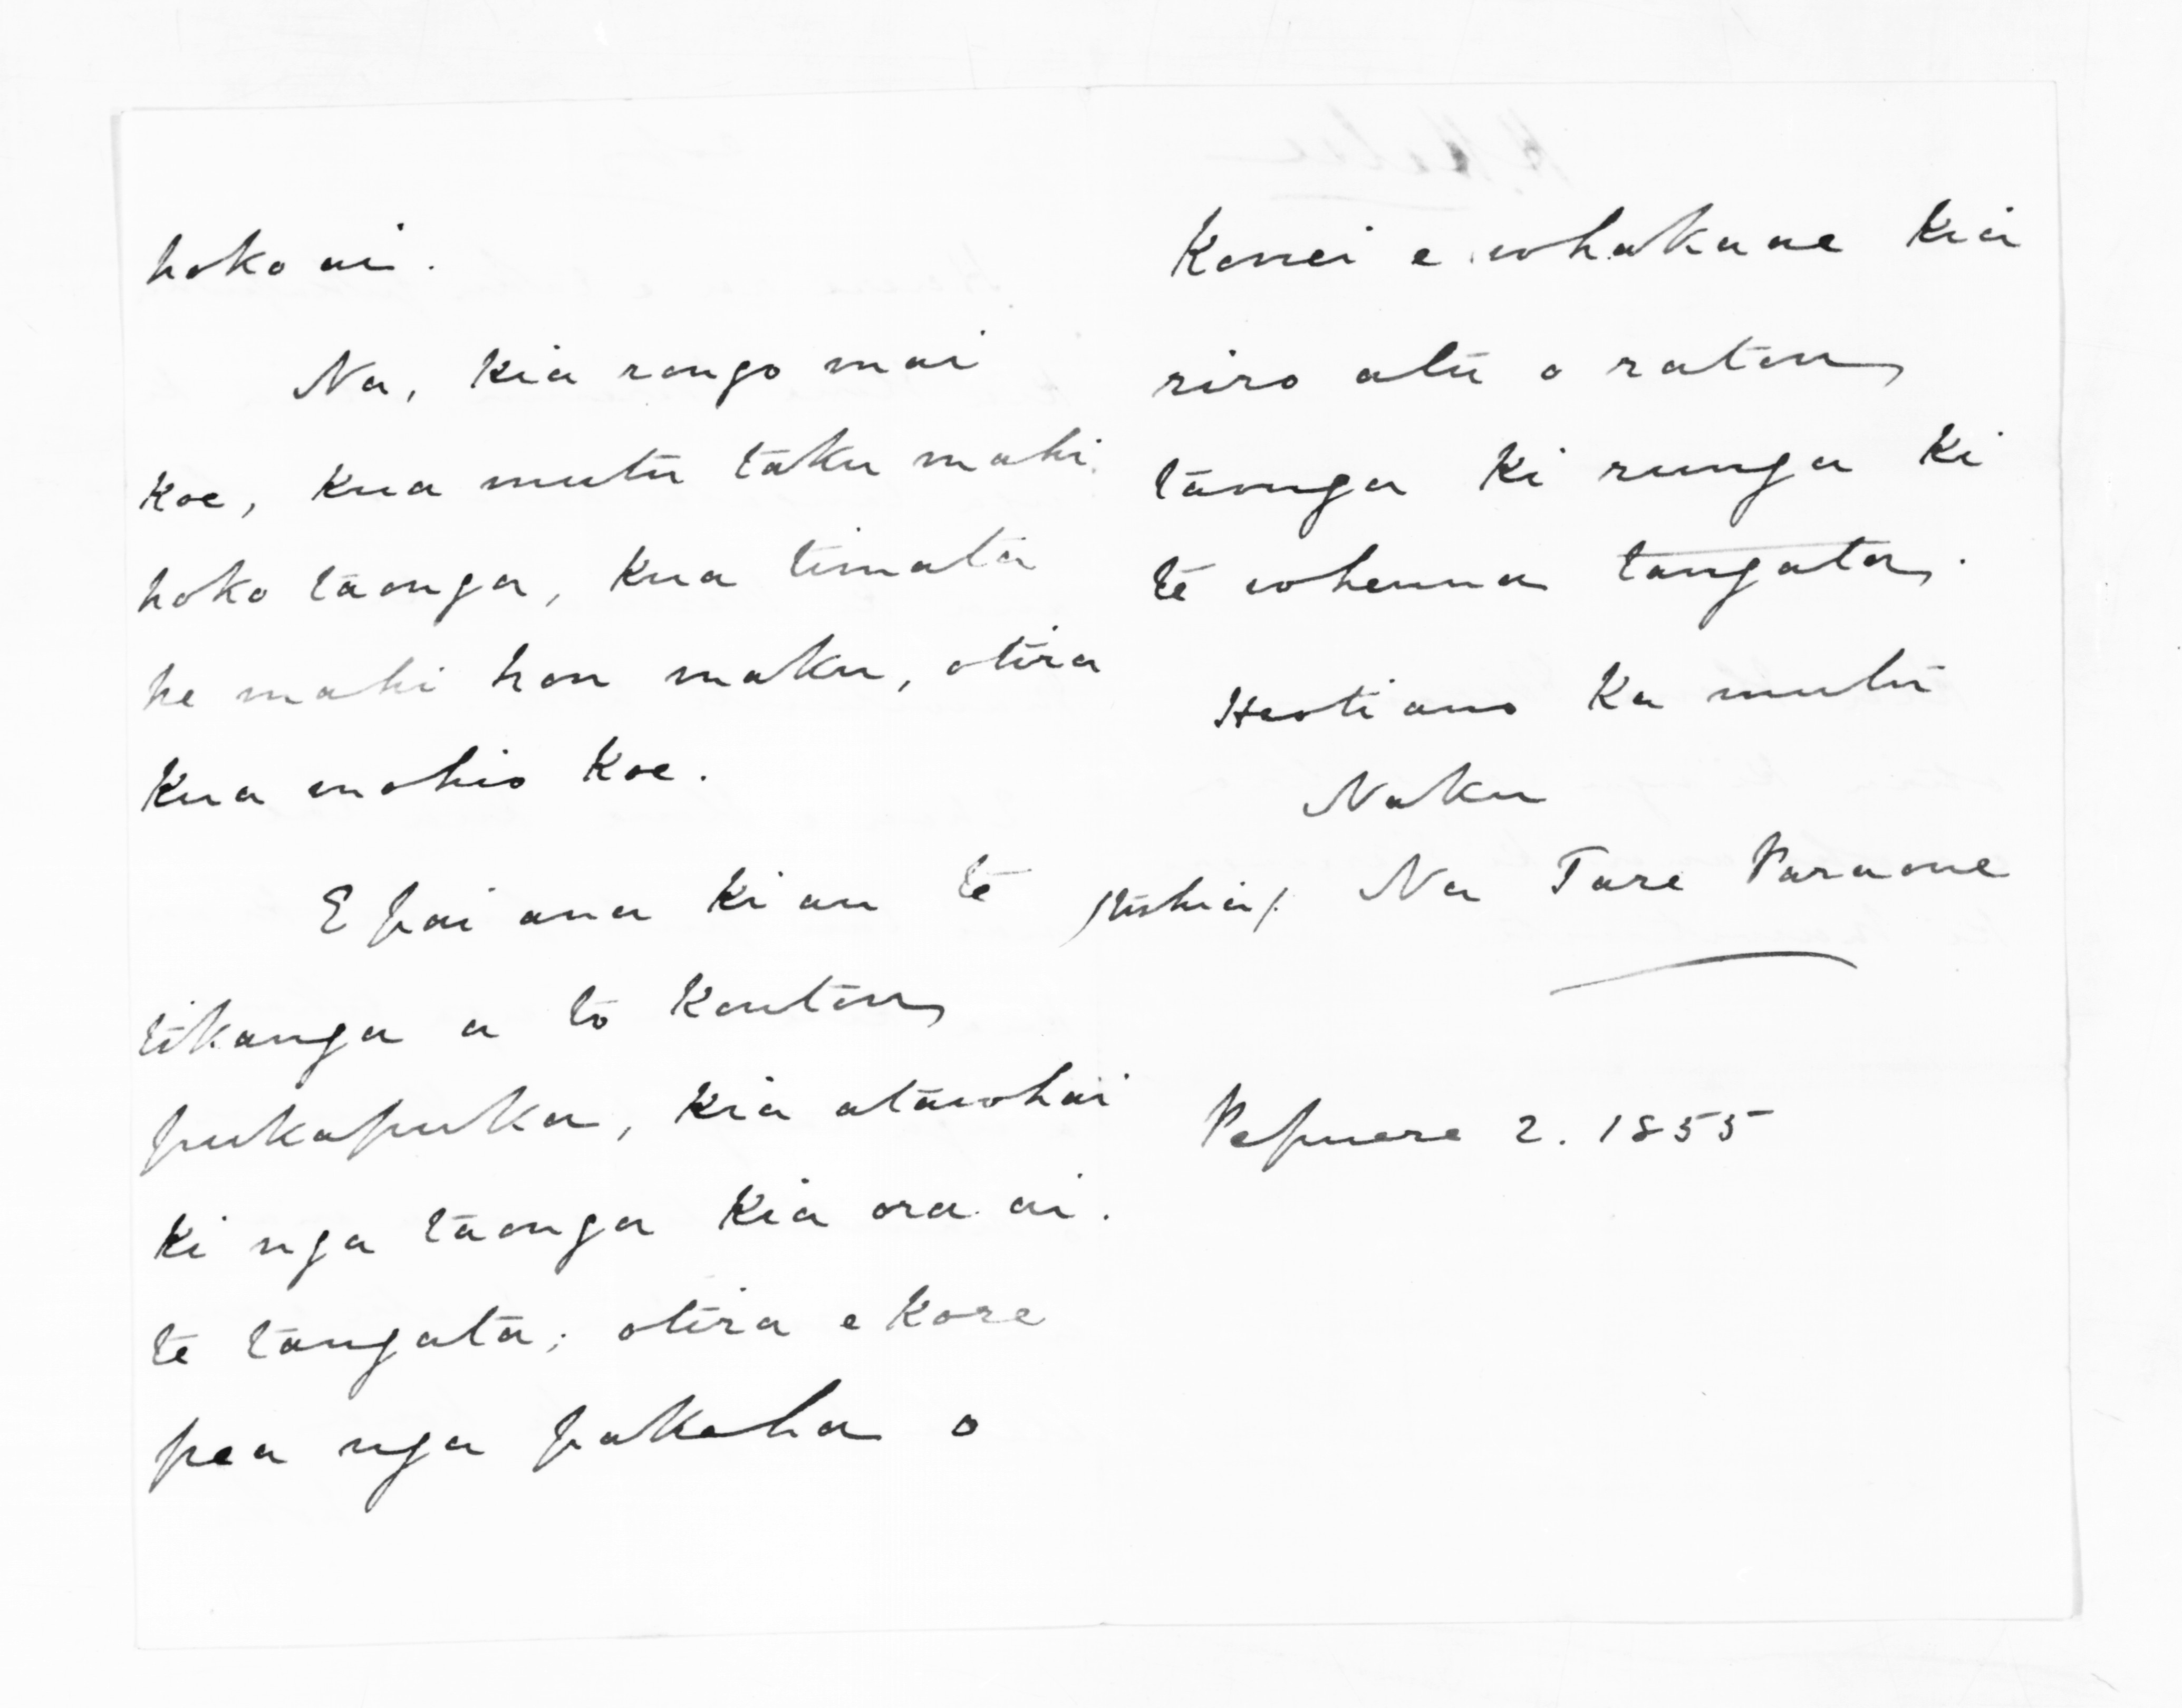 hoko ai.
Na, kia rongo mai
koe, kua mutu taku mahi
hoko taonga, kua timata
he mahi hou maku, otira
kua mohio koe.
E pai ana ki au te
tikanga a to koutou
pukapuka, kia atawhai
ki nga taonga kia ora ai.
te tangata; otira e kore
pea nga pakeha o
konei e whakaae kia
riro atu o ratou
taonga ki runga ki
te whenua tangata.
Heoti ano ka mutu
Naku
Na Tare Paraone
Pepuere 2. 1855